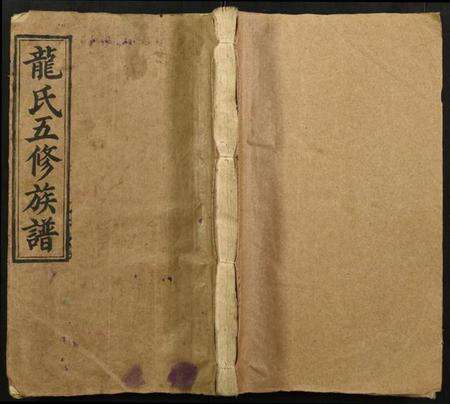 龍氏五修族譜